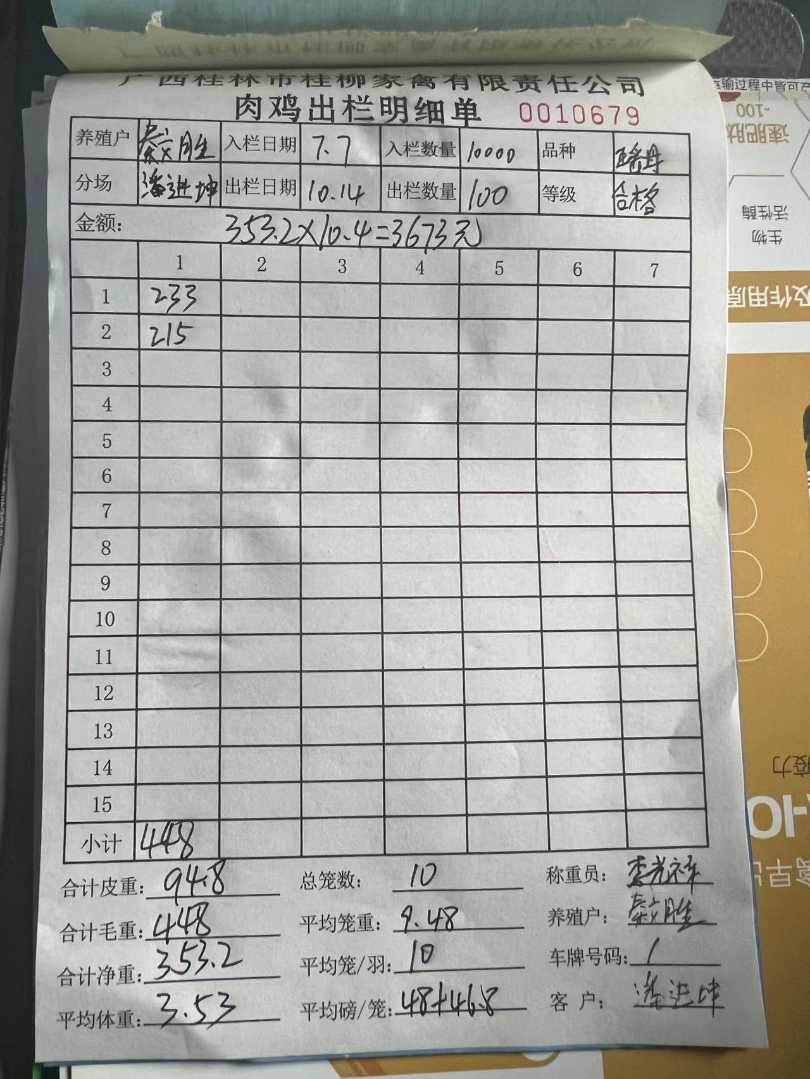 广西桂林市桂柳家禽有限责任公司
肉鸡出栏明细单 0010679
养殖户 秦文胜 入栏日期 7.7 入栏数量 10000 品种 瑶丹
分场 潘进坤 出栏日期 10.14 出栏数量 100 等级 合格
金额: 353.2×10.4=3673元
1 2 3 4 5 6 7
1 233
2 215
3
4
5
6
7
8
9
10
11
12
13
14
15
小计 448
合计皮重: 94.8 总笼数: 10 称重员: 李光祥
合计毛重: 448 平均笼重: 9.48 养殖户: 秦文胜
合计净重: 353.2 平均笼/羽: 10 车牌号码: 1
平均体重: 3.53 平均磅/笼: 48+46.8 客户: 潘进坤
速肥肽
-100
生物
活性酶
及作用原